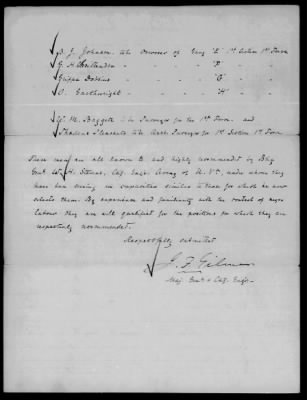 J. Johnson to be Overseer of Gang "E" 1st Section 1st Divn
G. H. " " " "F"
" " " "G"
O. Earthwright " " " "H"
W. M. Baggett to be Purveyor for the 1st Divn and
Thaddeus Pleasants to be Asst Purveyor for 1st Section 1st Divn
These men are all known to and highly recommended by Brig
Genl W. H. Stevens, Chf. Engr. Army of N. Va., under whom they
have been serving in capacities similar to those for which he now
selects them. By experience and familiarity with the control of negro
labour they are well qualified for the positions for which they are
respectively recommended.
Respectfully submitted
J. F. Gilmer
Maj. Genl & Chf. Engr.